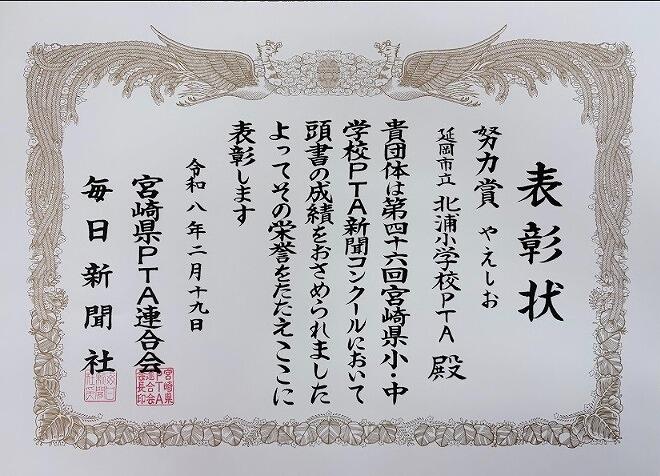 表彰状
努力賞 やえしお
延岡市立 北浦小学校PTA 殿
貴団体は第四十六回宮崎県小・中
学校PTA新聞コンクールにおいて
頭書の成績をおさめられました
よってその栄誉をたたえここに
表彰します
令和八年二月十九日
宮崎県PTA連合会
毎日新聞社
宮崎県
PTA
連合会
会長印